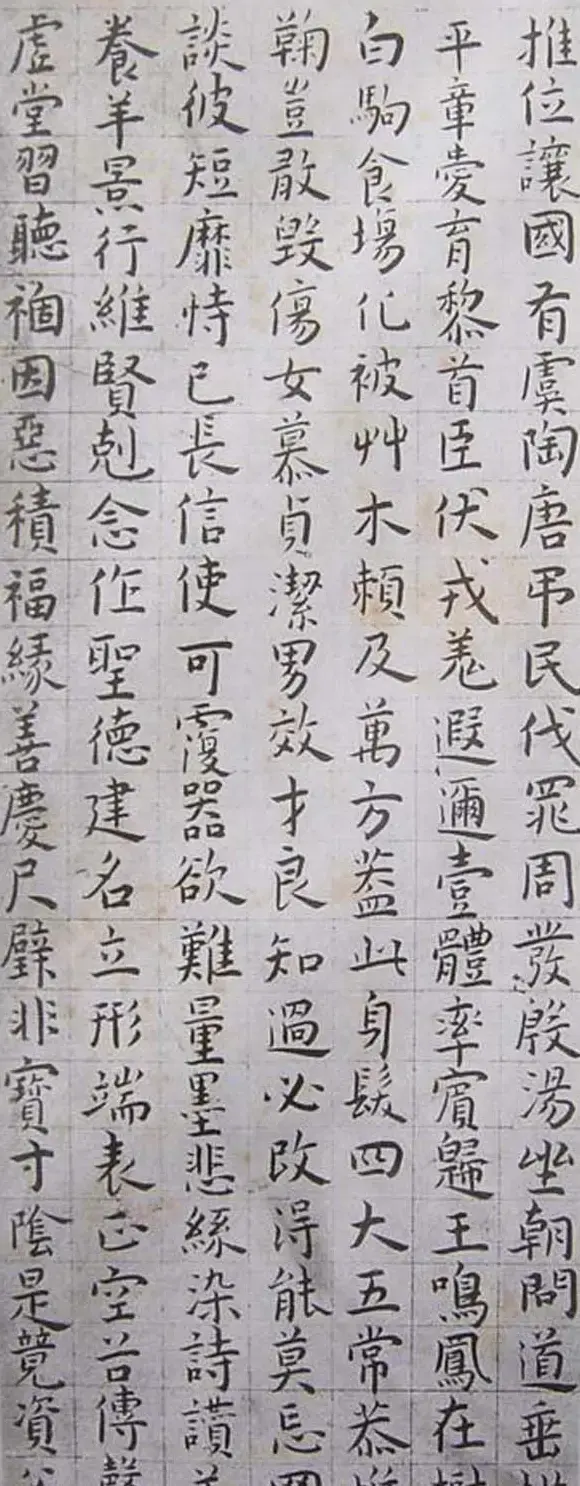 推位讓國有虞陶唐吊民伐罪周發殷湯坐朝問道垂
平章愛育黎首臣伏戎羌遐邇壹體率賓歸王鳴鳳在
白駒食場化被艸木賴及萬方蓋此身髮四大五常恭
鞠豈敢毀傷女慕貞潔男效才良知過必改得能莫忘
談彼短靡恃己長信使可覆器欲難量墨悲絲染詩讚
養羊景行維賢剋念作聖德建名立形端表正空谷傳
虛堂習聽禍因惡積福緣善慶尺璧非寶寸陰是競資